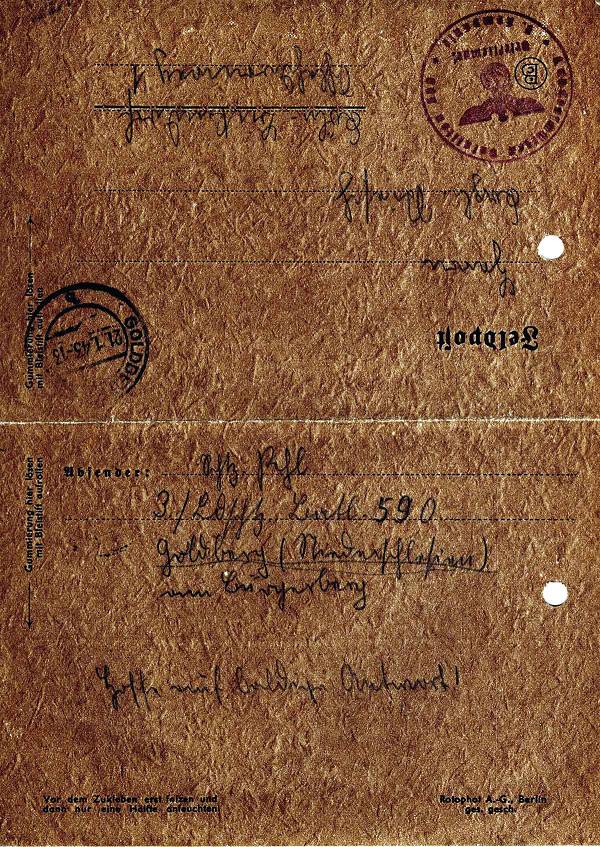 Feldpost
Herrn
Köln-
GOLDBE
Gummierung hier lösen
mit Bleistift aufrollen
Gummierung hier lösen
mit Bleistift aufrollen
Absender: Schtz. Pehl
3./Ldschtz. Batl. 590
Goldberg (Niederschlesien)
am Bürgerberg
Hoffe auf baldige Antwort!
Vor dem Zukleben erst falzen und
dann nur eine Hälfte anfeuchten
Rotophot A.-G., Berlin
ges. gesch.